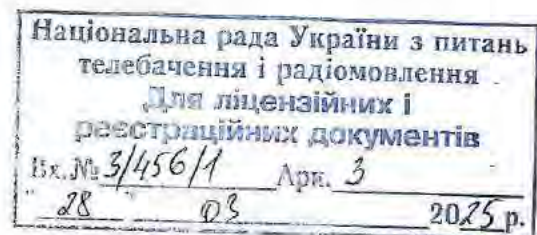 Національна рада України з питань
телебачення і радіомовлення
Для ліцензійних і
реєстраційних документів
Вх.№ 3/456/1 Арк. 3
"28" 03 2025 р.